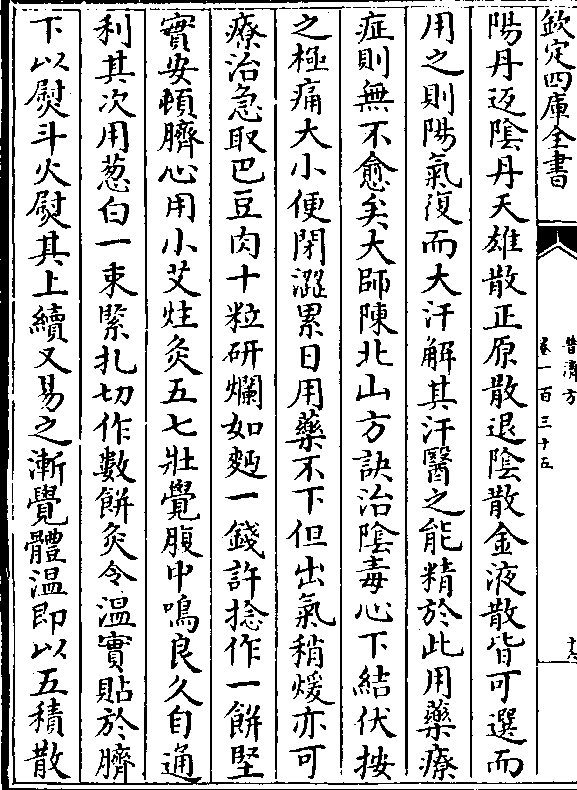 欽定四庫全書
普濟方
卷一百三十五
陽丹返陰丹天雄散正原散退陰散金液散皆可選而
用之則陽氣復而大汗解其汗醫之能精於此用藥療
症則無不愈矣大師陳北山方訣治陰毒心下結伏按
之極痛大小便閉澀累日用藥不下但出氣稍煖亦可
療治急取巴豆肉十粒研爛如麪一錢許捻作一餅堅
實安頓臍心用小艾炷灸五七壯覺腹中鳴良久自通
利其次用葱白一束緊扎切作數餅灸令溫實貼於臍
下以熨斗火熨其上續又易之漸覺體溫即以五積散